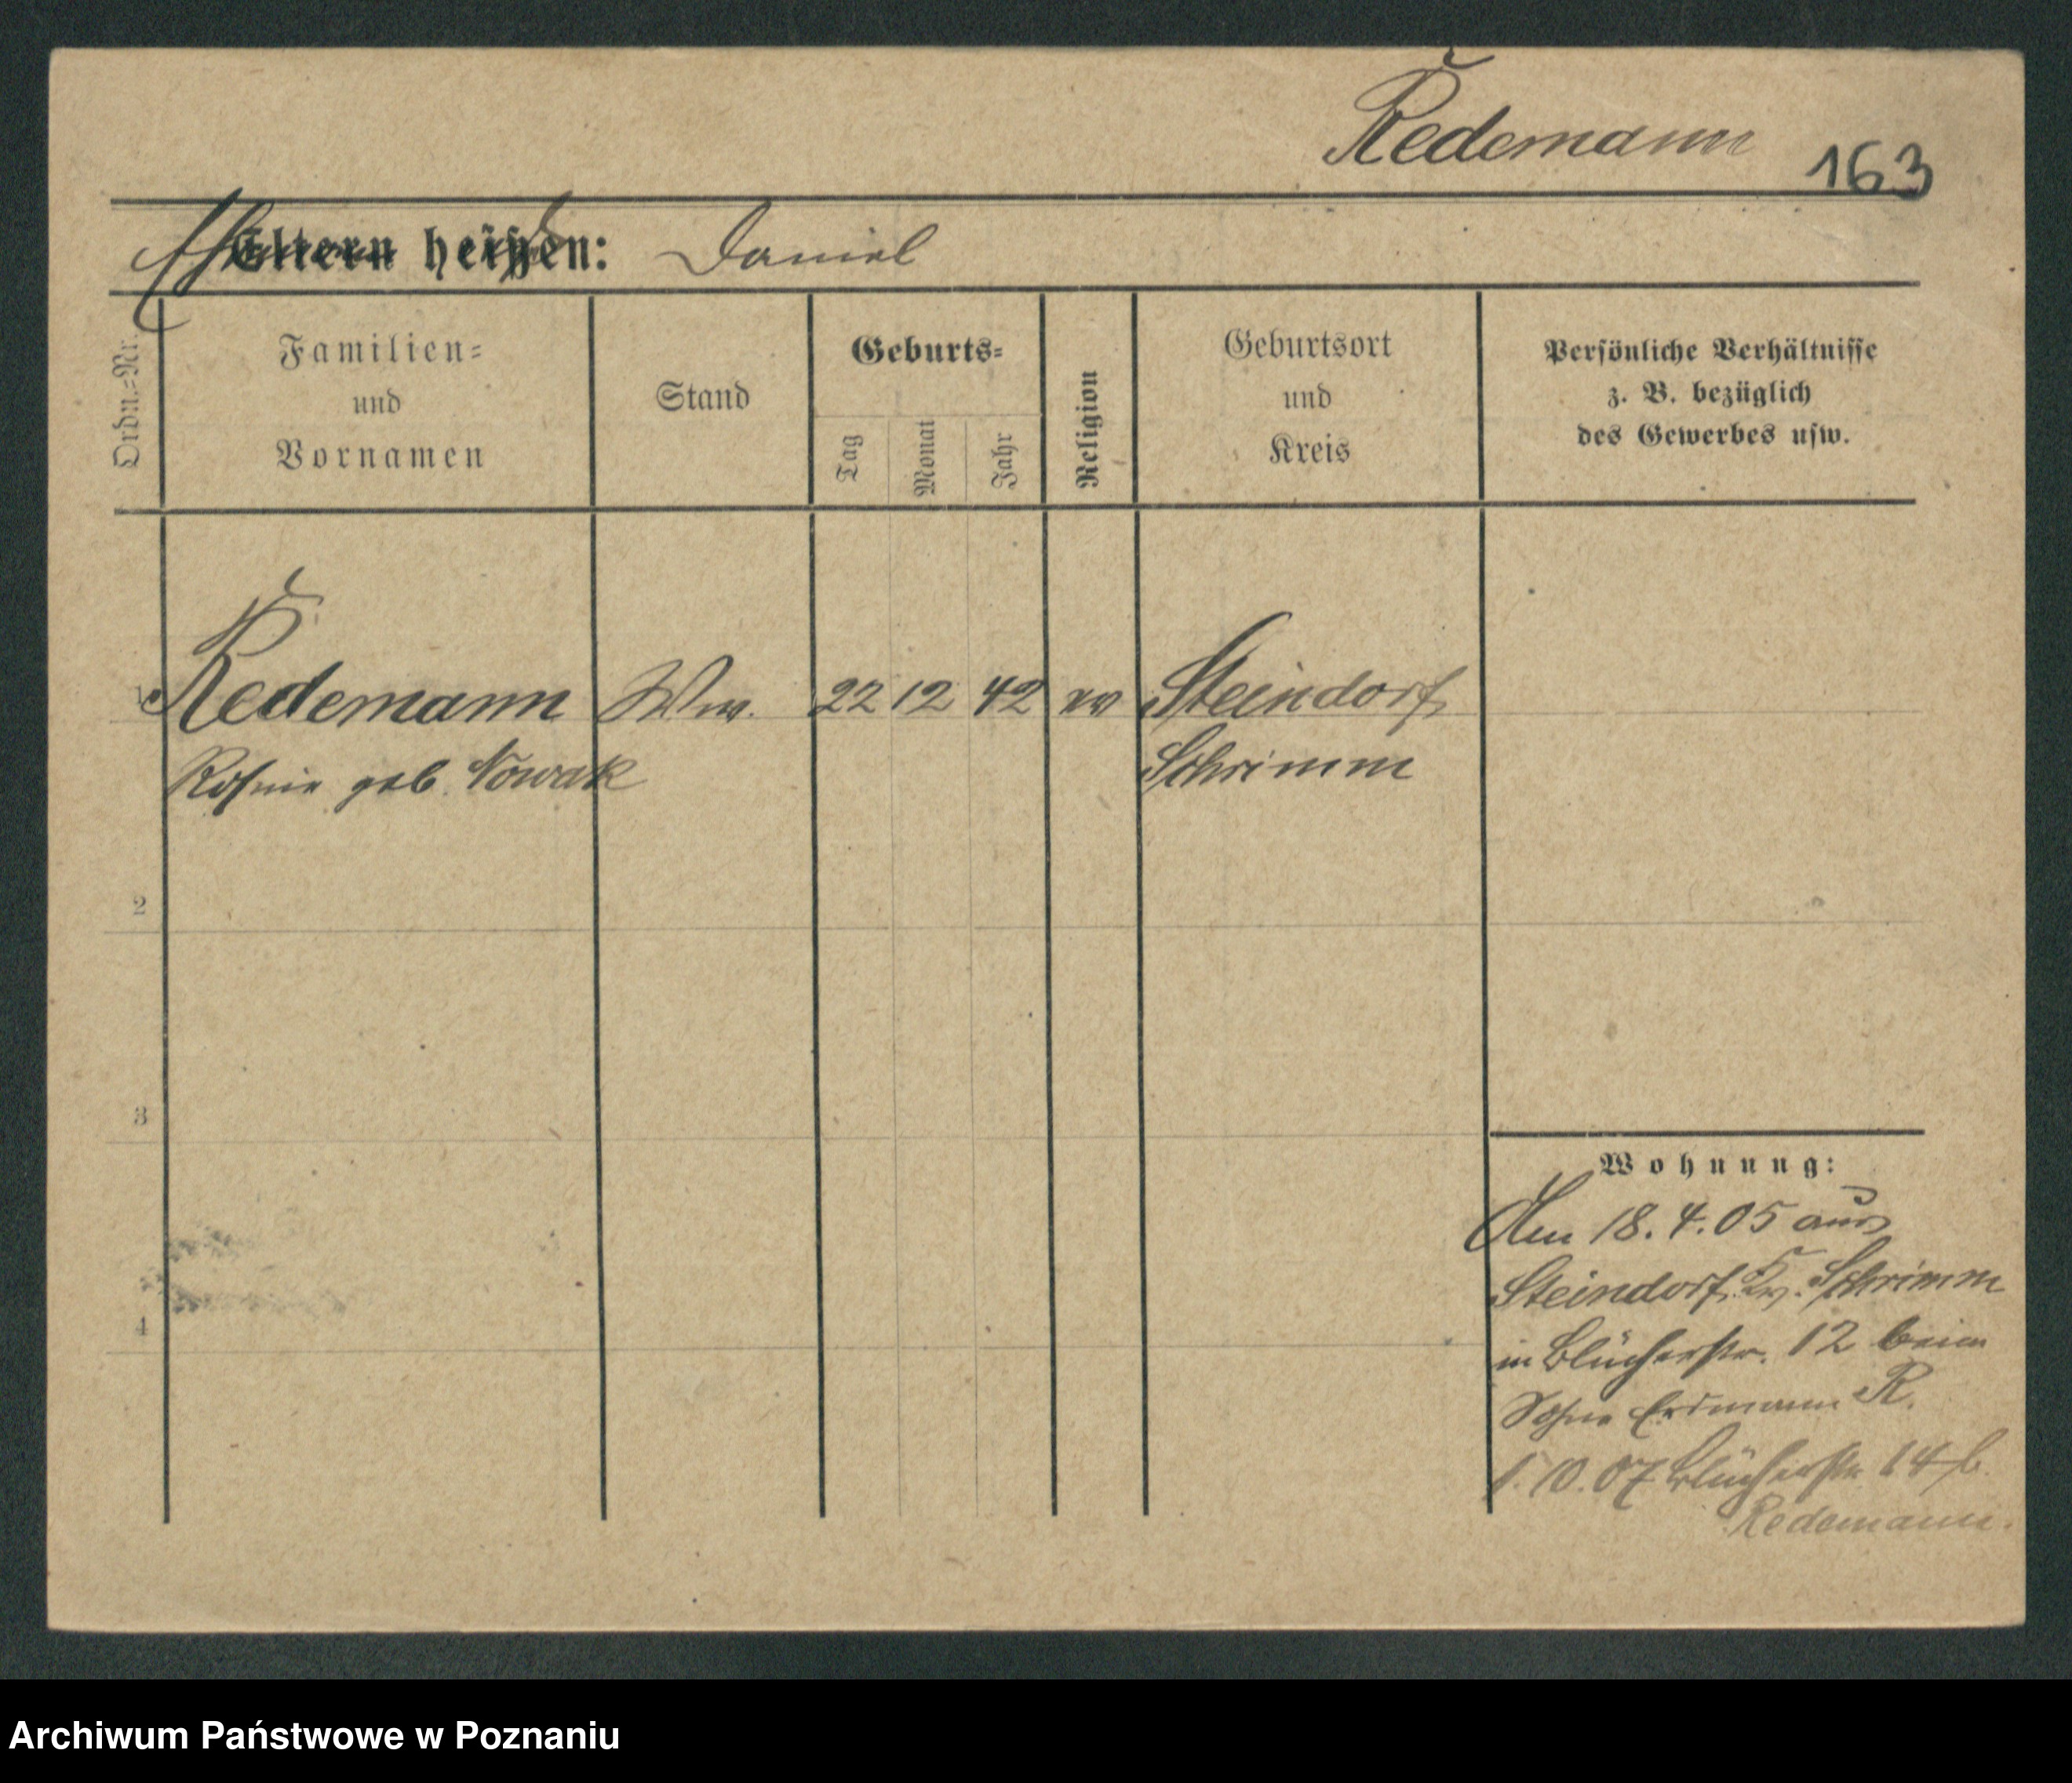 Redemann 163
Ehemann Eltern heißen: Daniel
Ordn.=Nr.
Familien=
und
Vornamen
Stand
Geburts=
Tag
Monat
Jahr
Religion
Geburtsort
und
Kreis
Persönliche Verhältnisse
z. B. bezüglich
des Gewerbes usw.
1 Redemann Ww. 22 12 42 ev Steindorf,
Rosine geb. Nowak Schrimm
2
3
4
Wohnung:
Am 18.4.05 aus
Steindorf, Kr. Schrimm
in Blücherstr. 12 beim
Sohne Erdmann R.
1.10.07 Blücherstr. 14b.
Redemann.
Archiwum Państwowe w Poznaniu